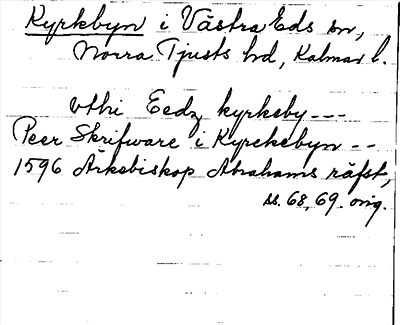 Kyrkbyn i Västra Eds sn,
Norra Tjusts hd, Kalmar l.
vthi Eedz kyrkeby ---
Peer Skrifware i Kyrckebyn --
1596 Ärkebiskop Abrahams räfst,
ss. 68, 69. orig.